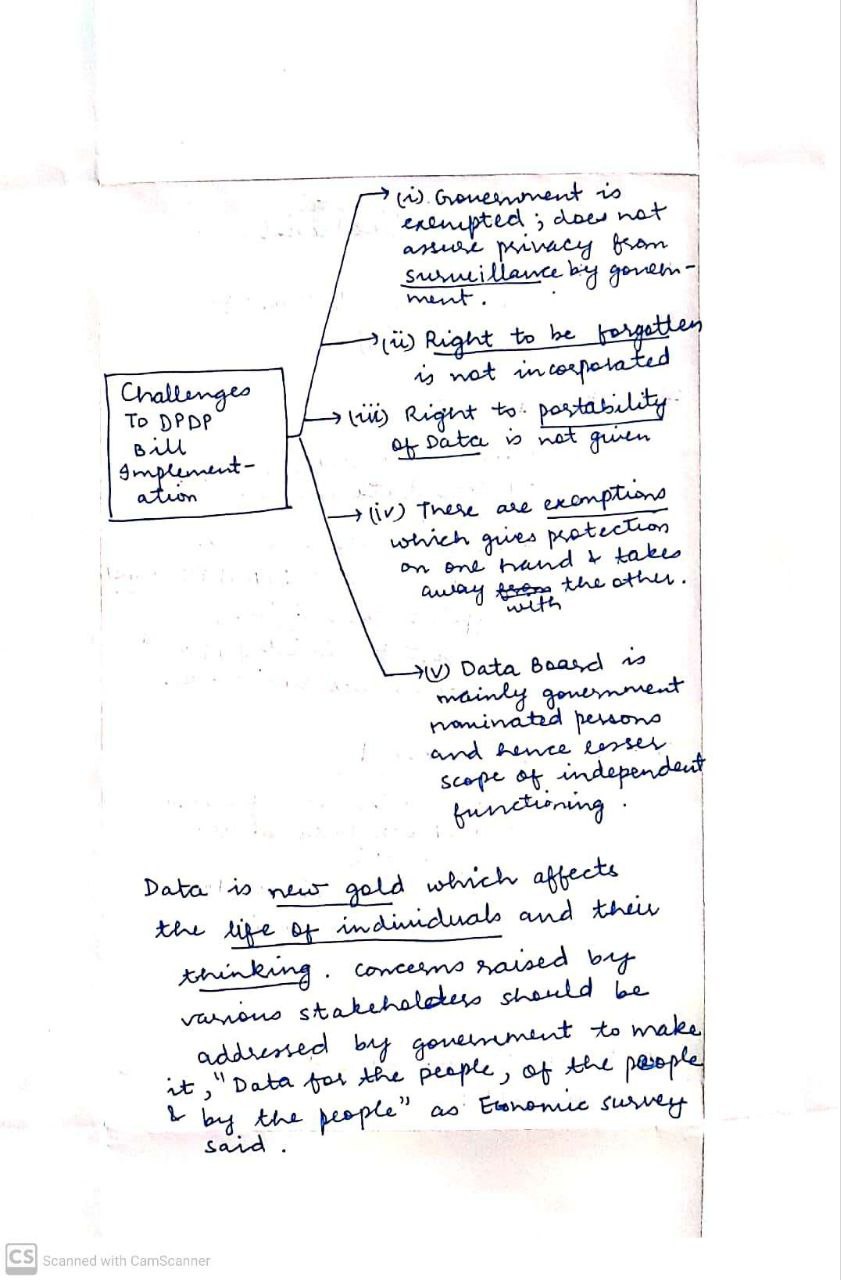 (i) Government is
exempted ; does not
assure privacy from
surveillance by govern-
ment.
(ii) Right to be forgotten
is not incorporated
Challenges
To DPDP
Bill
Implement-
ation
(iii) Right to portability
of Data is not given
(iv) There are exemptions
which gives protection
on one hand & takes
away from the other.
with
(v) Data Board is
mainly government
nominated persons
and hence lesser
scope of independent
functioning.
Data is new gold which affects
the life of individuals and their
thinking. concerns raised by
various stakeholders should be
addressed by government to make
it, "Data for the people, of the people
& by the people" as Economic survey
said.
CS Scanned with CamScanner